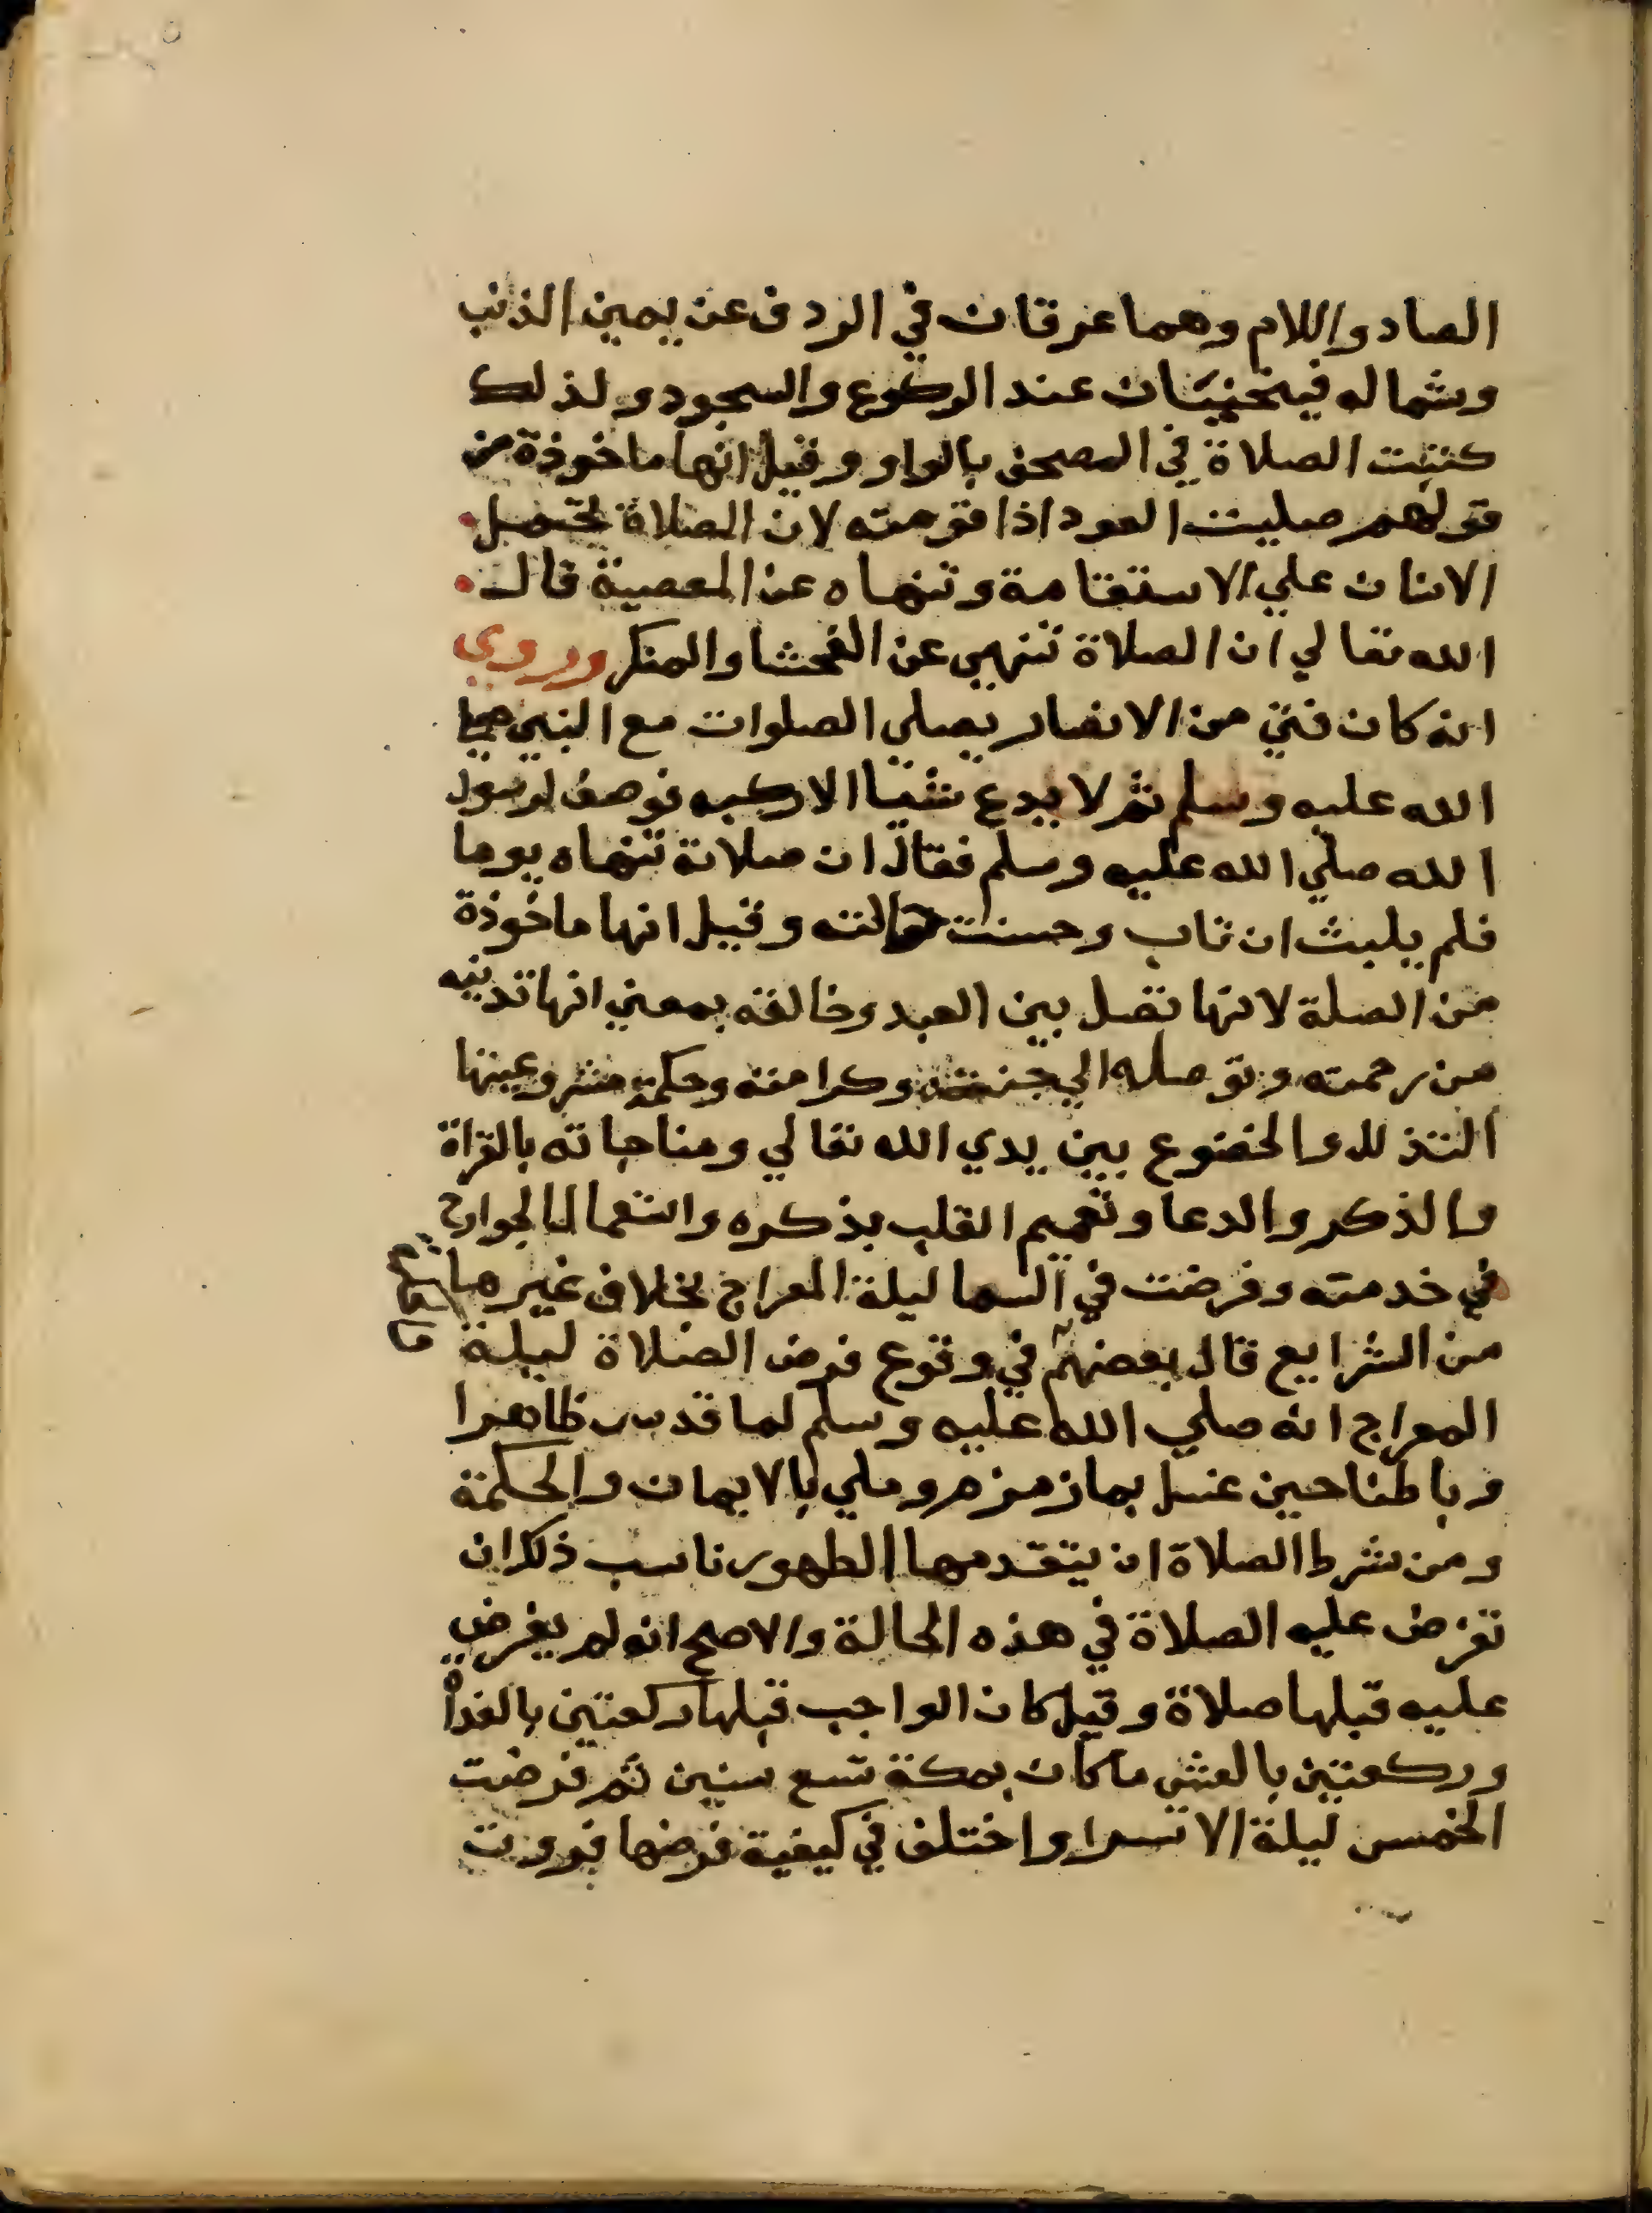 الصاد واللام وهما عرقان في الردف عن يمين الذنب
وشماله فينحنيان عند الركوع والسجود ولذلك
كتبت الصلاة في المصحف بالواو وقيل انها ماخوذة من
قولهم صليت العود اذا قومته لان الصلاة تحمل
الانسان علي الاستقامة وتنهاه عن المعصية قال
الله تعالي ان الصلاة تنهي عن الفحشا والمنكر وروي
انه كان فتي من الانصار يصلي الصلوات مع النبي صلي
الله عليه وسلم ثم لا يدع شيا الا ركبه فوصف لرسول
الله صلي الله عليه وسلم فقال ان صلاته تنهاه يوما
فلم يلبث ان تاب وحسنت حالته وقيل انها ماخوذة
من الصلة لانها تصل بين العبد وخالقه بمعني انها تدنيه
من رحمته وتوصله الي جنته وكرامته وحكمة مشروعيتها
التذلل والخضوع بين يدي الله تعالي ومناجاته بالقراة
والذكر والدعا وتعميم القلب بذكره واستعمال الجوارح
في خدمته وفرضت في السما ليلة المعراج بخلاف غيرها
من الشرايع قال بعضهم في وقوع فرض الصلاة ليلة
المعراج انه صلي الله عليه وسلم لما قدس ظاهرا
وباطنا حين غسل بما زمزم وملي بالايمان والحكمة
ومن شرط الصلاة ان يتقدمها الطهور ناسب ذلك ان
تفرض عليه الصلاة في هذه الحالة والاصح انه لم يفرض
عليه قبلها صلاة وقيل كان الواجب قبلها ركعتين بالغداة
وركعتين بالعشي ما كان بمكة تسع سنين ثم فرضت
الخمس ليلة الاسرا واختلف في كيفية فرضها فورت